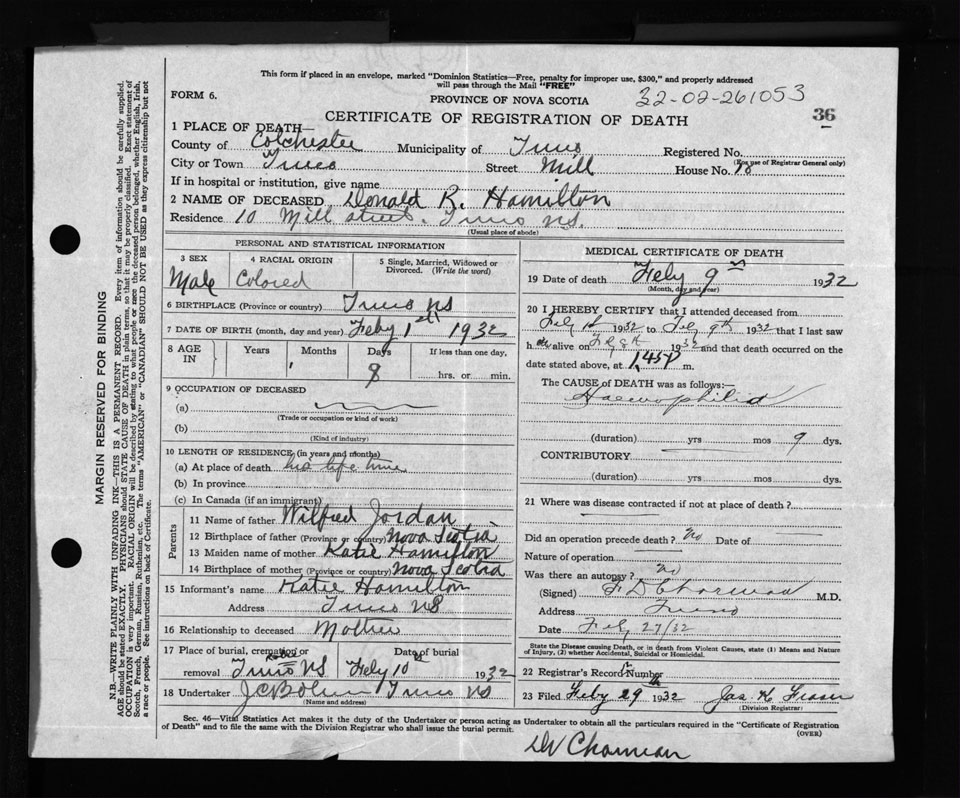 This form if placed in an envelope, marked "Dominion Statistics—Free, penalty for improper use, $300," and properly addressed
will pass through the Mail "FREE"
FORM 6.
PROVINCE OF NOVA SCOTIA
32-02-261053
CERTIFICATE OF REGISTRATION OF DEATH
36
1 PLACE OF DEATH—
County of Colchester Municipality of Truro Registered No.
(For use of Registrar General only)
City or Town Truro Street Mill House No. 10
If in hospital or institution, give name
2 NAME OF DECEASED Donald R. Hamilton
Residence 10 Mill street. Truro NS.
(Usual place of abode)
PERSONAL AND STATISTICAL INFORMATION
3 SEX 4 RACIAL ORIGIN 5 Single, Married, Widowed or Divorced. (Write the word)
Male Colored
6 BIRTHPLACE (Province or country) Truro NS
7 DATE OF BIRTH (month, day and year) Feby 1st 1932
8 AGE IN Years Months Days If less than one day,
9 hrs. or min.
9 OCCUPATION OF DECEASED
(a)
(Trade or occupation or kind of work)
(b)
(Kind of industry)
10 LENGTH OF RESIDENCE (in years and months)
(a) At place of death his life time
(b) In province
(c) In Canada (if an immigrant)
Parents
11 Name of father Wilfred Jordan
12 Birthplace of father (Province or country) Nova Scotia
13 Maiden name of mother Katie Hamilton
14 Birthplace of mother (Province or country) Nova Scotia
15 Informant's name Katie Hamilton
Address Truro NS
16 Relationship to deceased Mother
17 Place of burial, cremation or removal Date of burial
Truro NS Feby 10 1932
18 Undertaker Truro NS
(Name and address)
MEDICAL CERTIFICATE OF DEATH
19 Date of death Feby 9 1932
(Month, day and year)
20 I HEREBY CERTIFY that I attended deceased from
1932 to Feb 9th 1932 that I last saw
h alive on 1932 and that death occurred on the
date stated above, at 1.45 P m.
The CAUSE OF DEATH was as follows:—
Haemophilia
(duration) yrs mos 9 dys.
CONTRIBUTORY
(duration) yrs mos dys.
21 Where was disease contracted if not at place of death?
Did an operation precede death? no Date of
Nature of operation
Was there an autopsy? no
(Signed) M.D.
Address Truro
Date Feb 29/32
State the Disease causing Death, or in death from Violent Causes, state (1) Means and Nature of Injury, (2) whether Accidental, Suicidal or Homicidal.
22 Registrar's Record Number
23 Filed Feby 29 1932 Jas. H. Fraser
(Division Registrar)
Sec. 46—Vital Statistics Act makes it the duty of the Undertaker or person acting as Undertaker to obtain all the particulars required in the "Certificate of Registration
of Death" and to file the same with the Division Registrar who shall issue the burial permit.
(OVER)
MARGIN RESERVED FOR BINDING
N.B.—WRITE PLAINLY WITH UNFADING INK—THIS IS A PERMANENT RECORD. Every item of information should be carefully supplied.
AGE should be stated EXACTLY. PHYSICIANS should STATE CAUSE OF DEATH in plain terms, so that it may be properly classified. Exact statement of
OCCUPATION is very important. RACIAL ORIGIN will be described by stating to what people or race the deceased person belonged, whether English, Irish,
Scotch, French, German, Russian, Ruthenian, etc. The terms "AMERICAN" or "CANADIAN" SHOULD NOT BE USED as they express citizenship but not
a race or people. See instructions on back of Certificate.